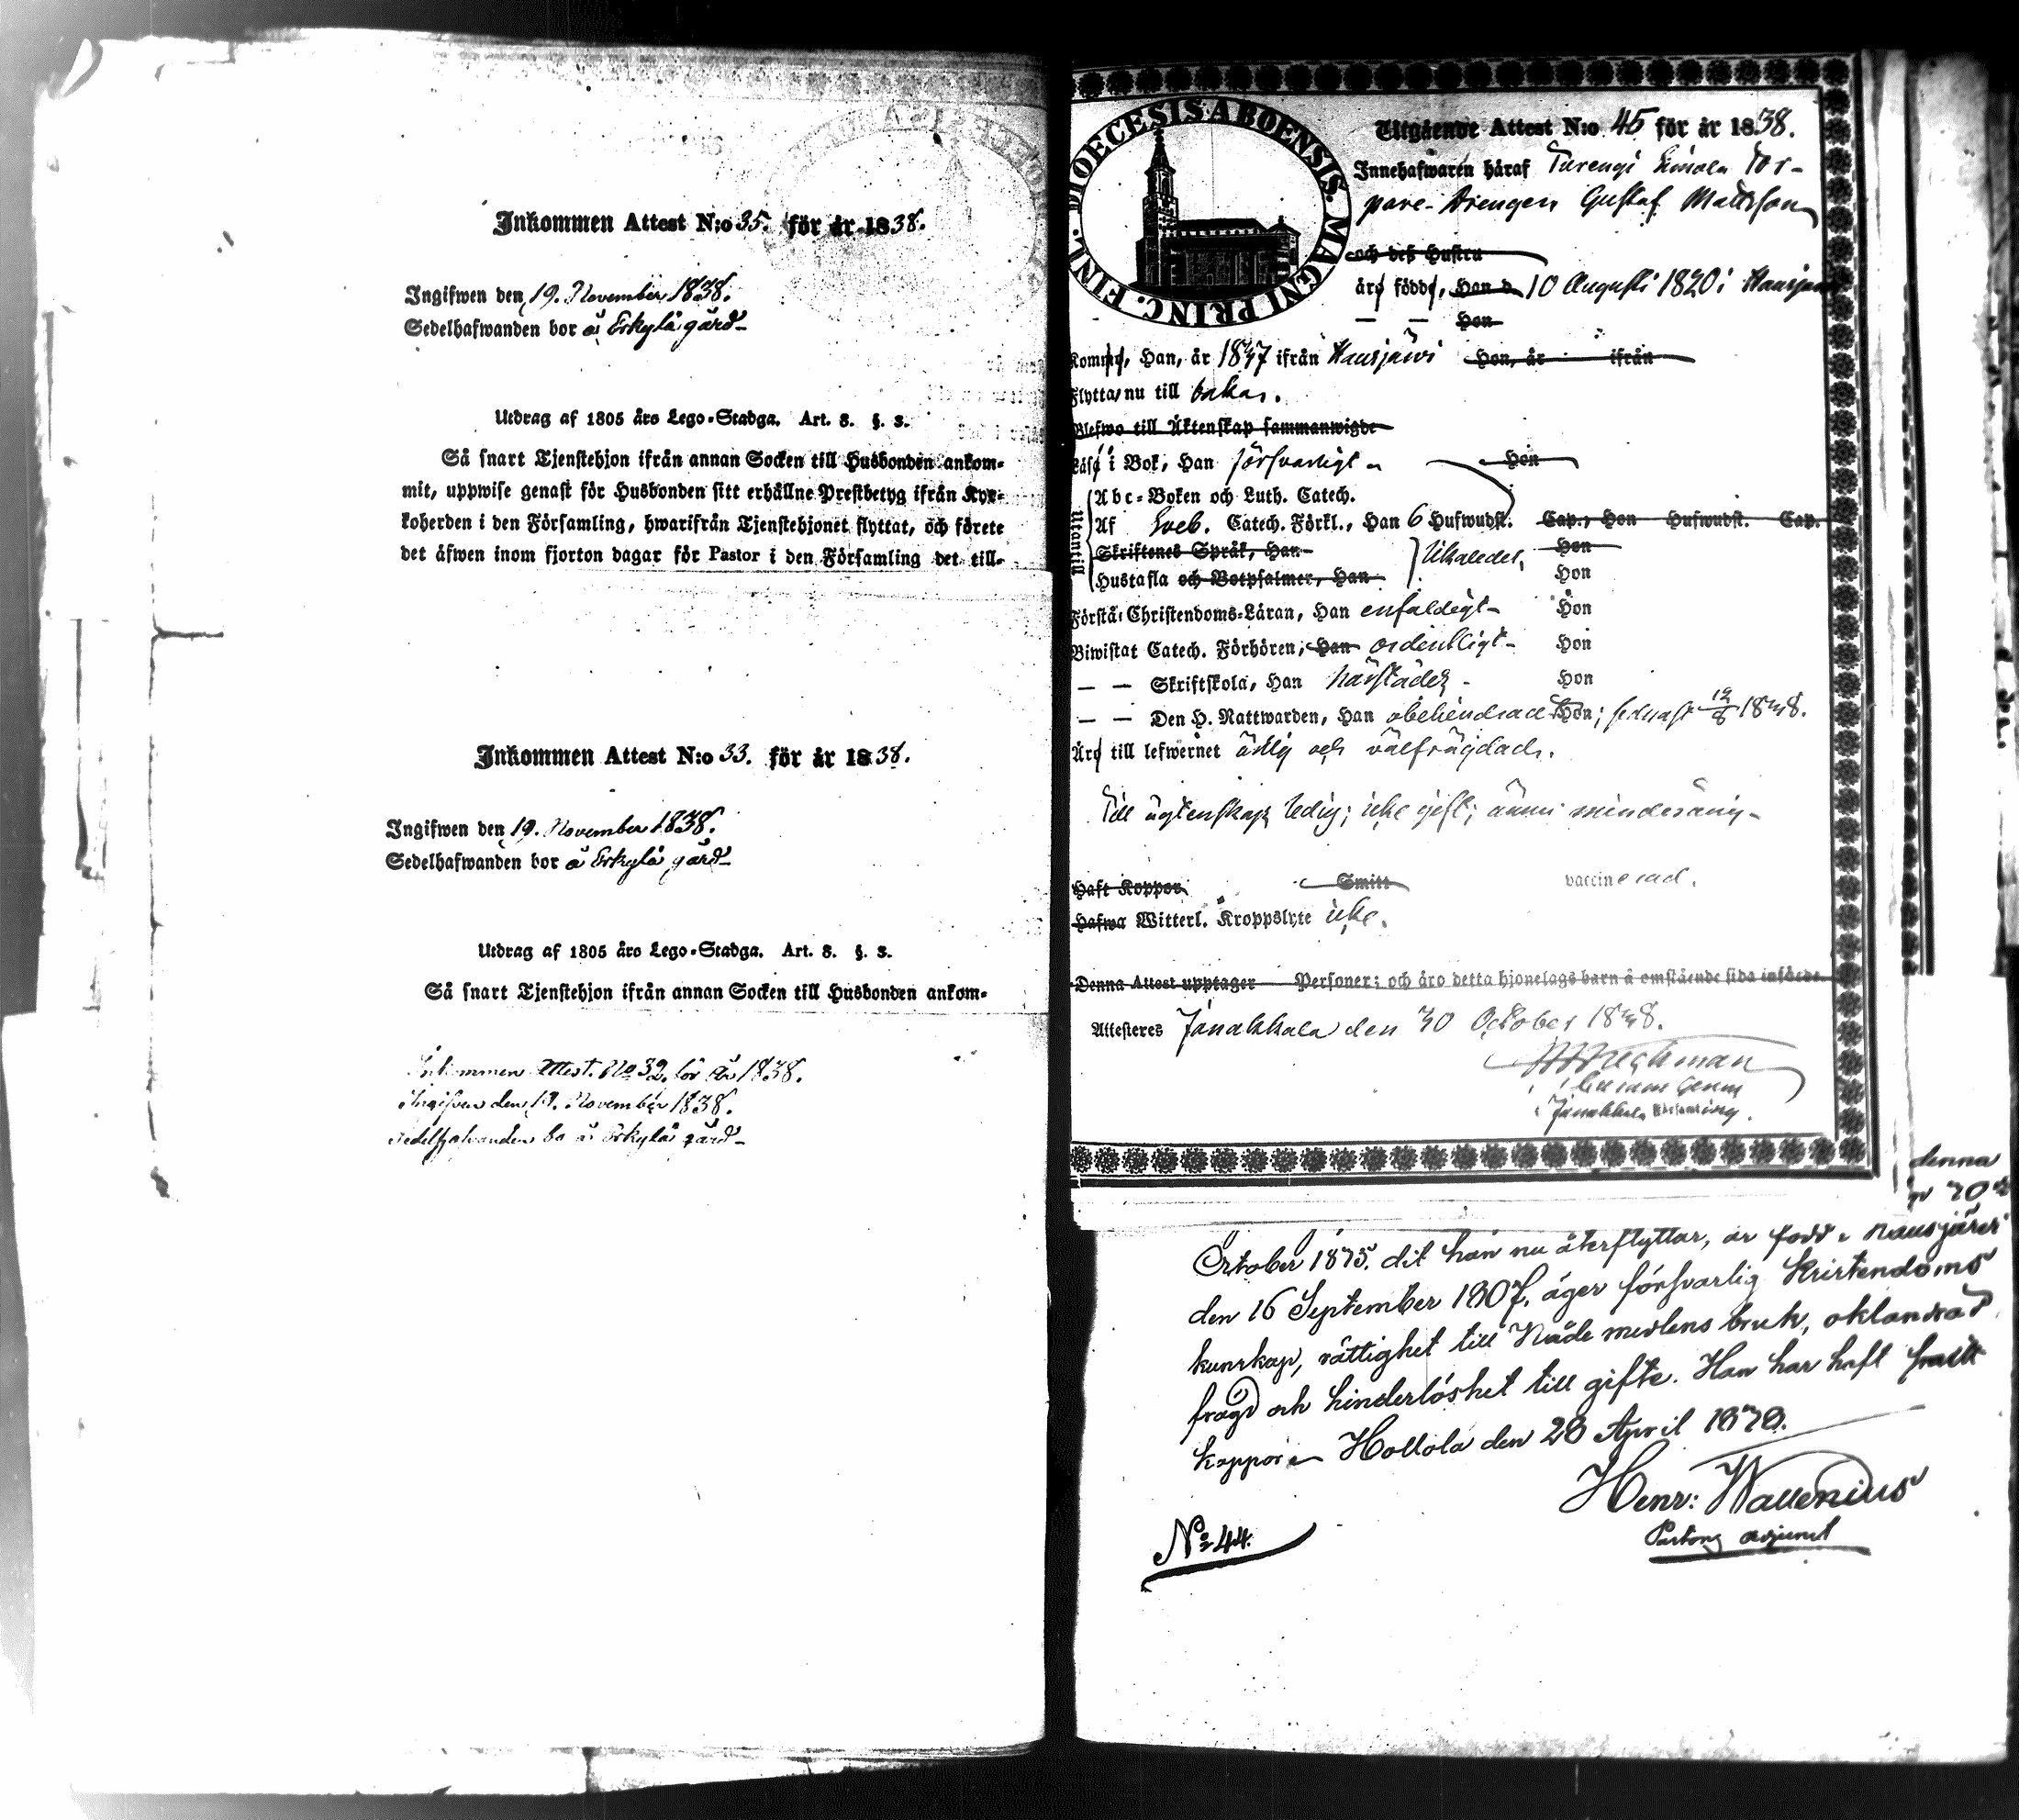 Inkommen Attest N:o 35. för år 1838.
Ingifwen den 19. November 1838.
Sedelhafwanden bor å Erkylä gård
Utdrag af 1805 års Lego-Stadga. Art. 8. §. 3.
Så snart Tjenstehjon ifrån annan Socken till Husbonden ankom-
mit, uppwise genast för Husbonden sitt erhållne Prestbetyg ifrån Kyr-
koherden i den Församling, hwarifrån Tjenstehjonet flyttat, och förete
det äfwen inom fjorton dagar för Pastor i den Församling det till-
Inkommen Attest N:o 33. för år 1838.
Ingifwen den 19. November 1838.
Sedelhafwanden bor å Erkylä gård
Utdrag af 1805 års Lego-Stadga. Art. 8. §. 3.
Så snart Tjenstehjon ifrån annan Socken till Husbonden ankom-
Inkommen Attest. No 32. för år 1838.
Ingifven den 19. November 1838.
Sedelhafvanden bo å Erkylä gård
DIOECESIS ABOENSIS. MAGNI PRINC. FINL.
Utgående Attest N:o 45 för år 1838.
Innehafwaren häraf Turengi Tor-
pare-Drengen Gustaf Mattsson
och deß Hustru
äro födde, Han d. 10 Augusti 1820 i Hausjärvi
— — Hon
Kommo, Han, år 1837 ifrån Hausjärvi Hon, år ifrån
Flytta nu till bakas.
Blefwo till Äktenskap sammanwigde
Läsa i Bok, Han försvarligt Hon
Utantill
Abc-Boken och Luth. Catech.
Af Sveb. Catech. Förkl., Han 6 Hufwudst. Cap., Hon Hufwudst. Cap.
Skriftenes Språk, Han Hon
Hustafla och Botpsalmer, Han Hon
Förstå Christendoms-Läran, Han enfaldigt Hon
Biwistat Catech. Förhören, Han ordentligt Hon
— — Skriftskola, Han härstädes Hon
— — Den H. Nattwarden, Han obehindrad Hon; sednast 12/8 1838.
Äro till lefwernet ärlig och välfrägdad.
Till ägtenskap ledig; icke gift; ännu minderårig
Haft Koppor Smitt vaccinerad.
Hafwa Witterl. Kroppslyte icke.
Denna Attest upptager Personer; och äro detta hjonelags barn å omstående sida införde.
Attesteres Janakkala den 30 October 1838.
Janakkala Församling.
denna
October 1875, dit han nu återflyttar, är född i Hausjärvi
den 16 September 1807, äger försvarlig Kristendoms
kunskap, rättighet till Nåde medlens bruk, oklandrad
frägd och hinderlöshet till gifte. Han har haft
koppor. Hollola den 28 April 1878.
Henr: Wallenius
Pastors adjunct
No 44.